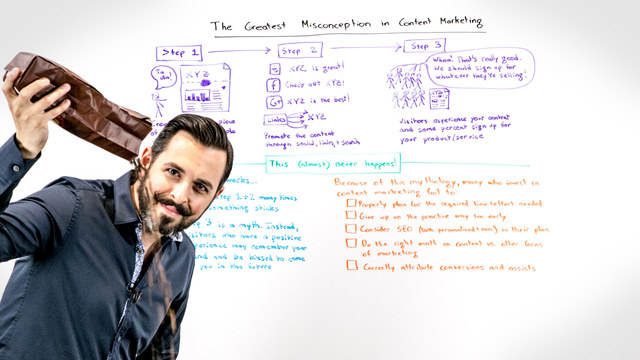 The Greatest Misconception in Content Marketing
Step 1
Step 2
Step 3
Ta da!
XYZ
XYZ is great!
f Check out XYZ!
G+ XYZ is the best!
Links XYZ
Promote the content
through social, links, + search
Whoa! That's really good.
We should sign up for
whatever they're selling!
Visitors experience your content
and some percent sign up for
your product/service
This (almost) never happens!
many times
something sticks
is a myth. Instead,
visitors who have a positive
experience may remember your
and be biased to come
you in the future
Because of this mythology, many who invest in
content marketing fail to:
Properly plan for the required time/effort needed
Give up on the practice way too early
Consider SEO in their plan
Do the right math on content vs. other forms
of marketing
Correctly attribute conversions and assists